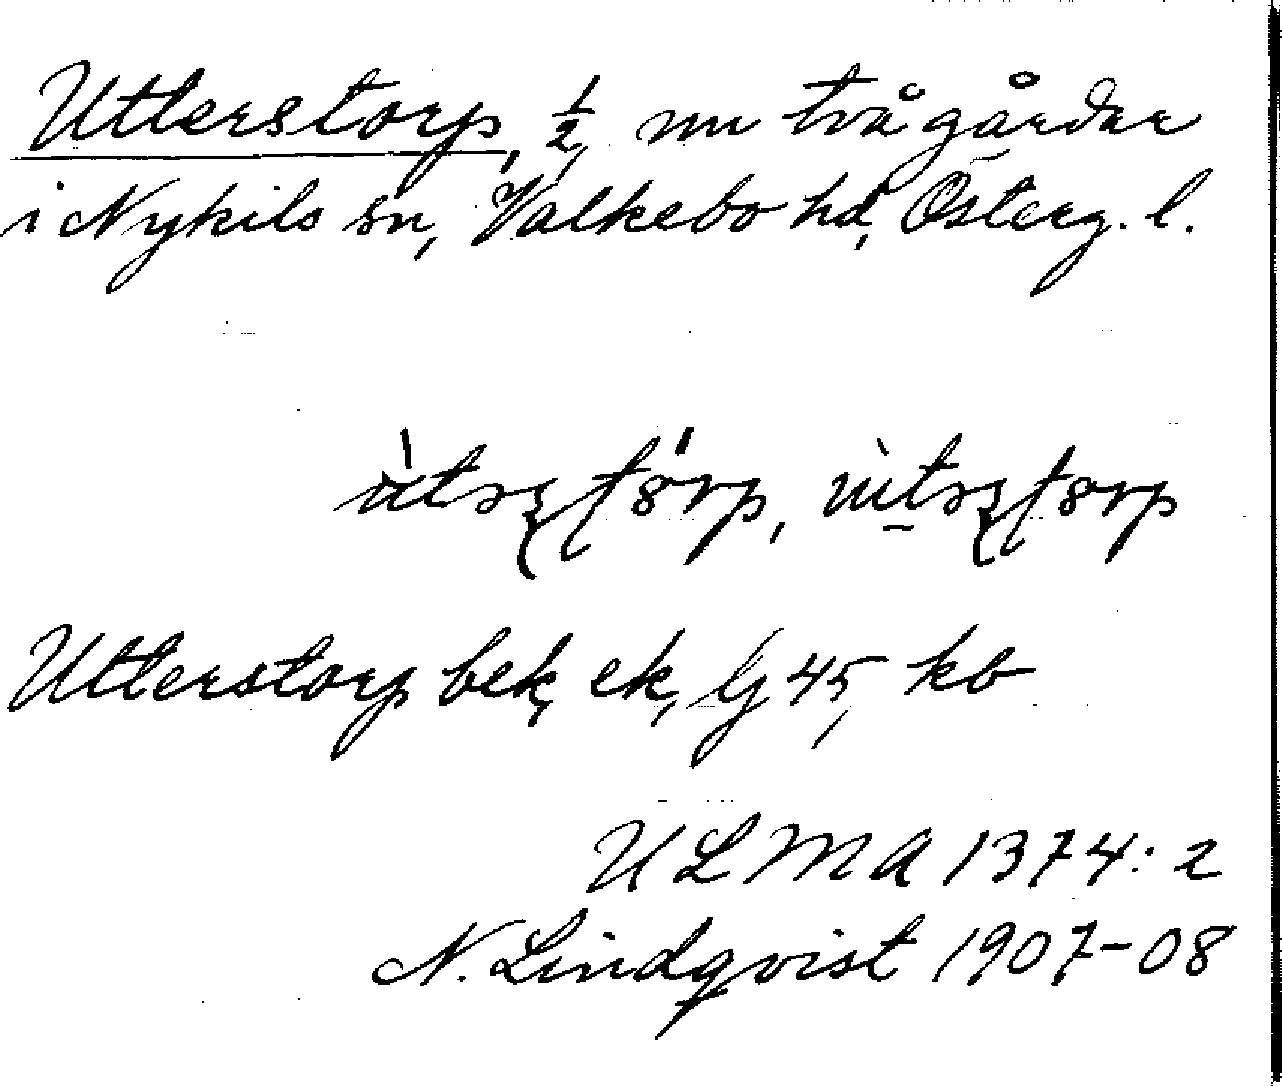 Utterstorp, 1/2, nu två gårdar
i Nykils sn, Valkebo hd, Österg. l.
Utterstorp bek, ek, Gj 45, kb
ULMA 1374:2
N. Lindqvist 1907-08